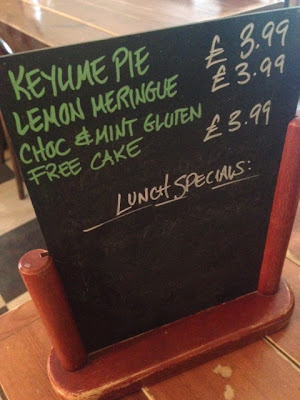 KEYLIME PIE £3.99
LEMON MERINGUE £3.99
CHOC & MINT GLUTEN £3.99
FREE CAKE
LUNCH SPECIALS: